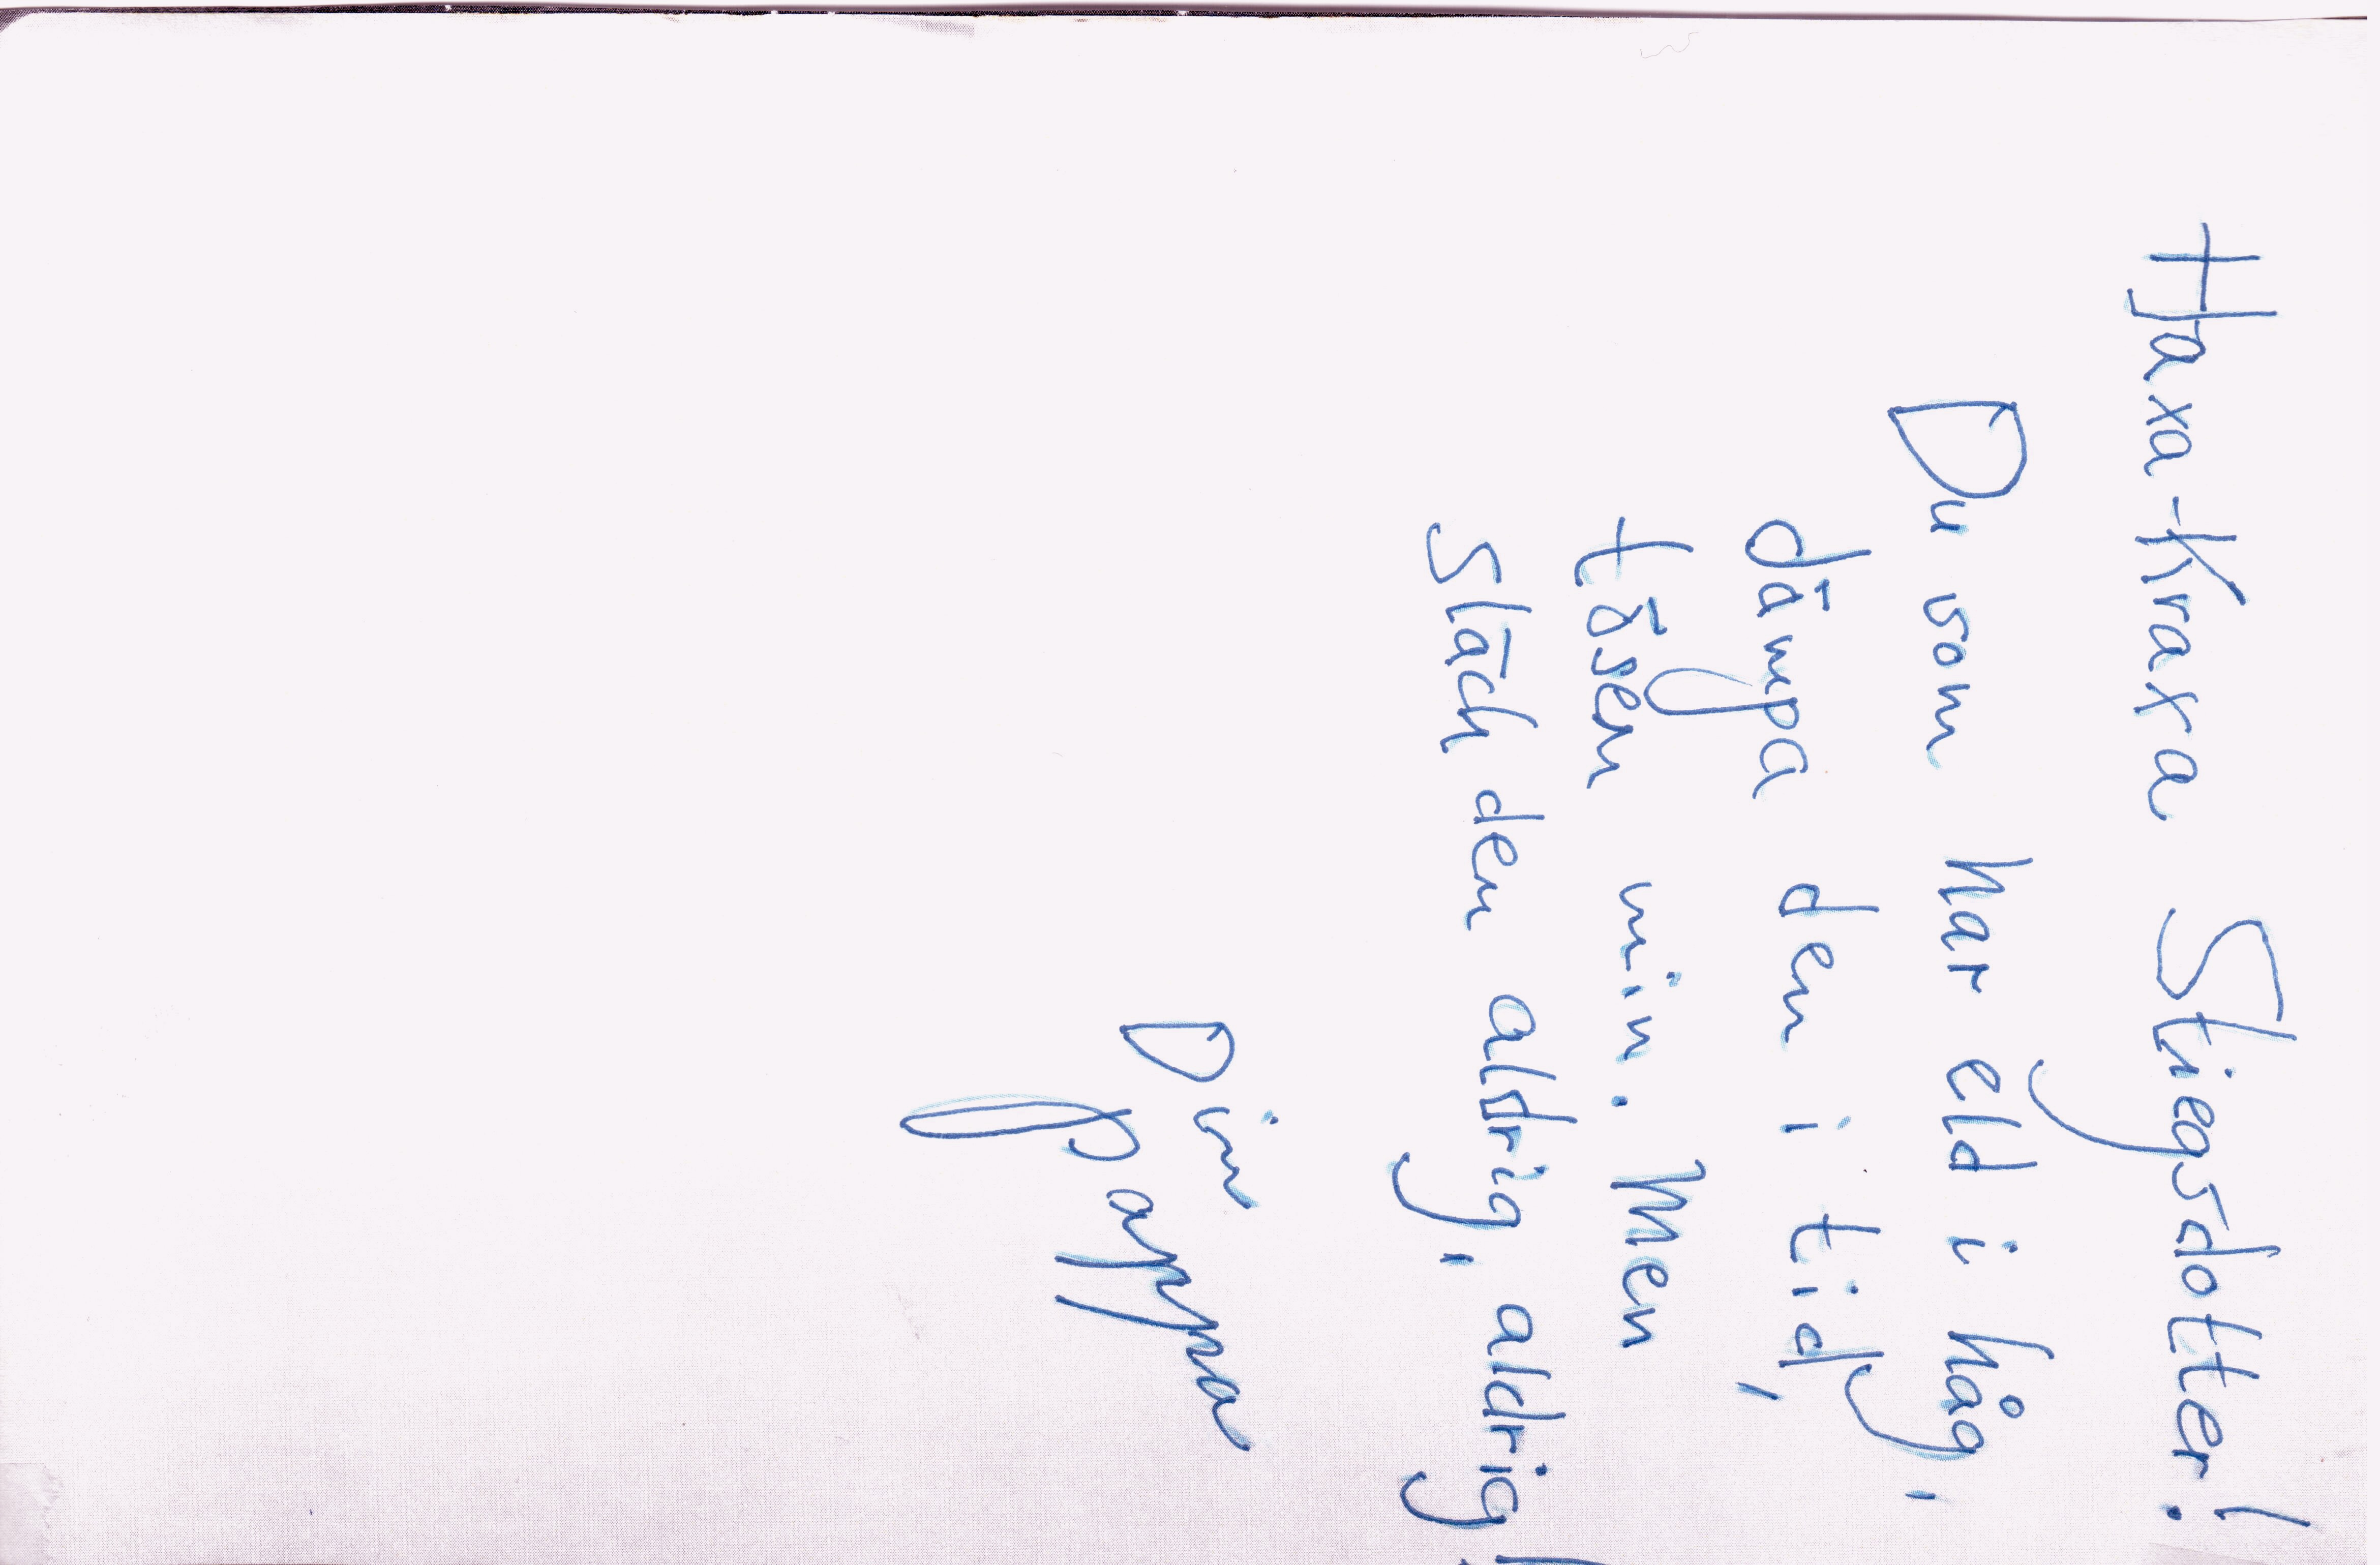 Haxa-Kraxa Stiegsdotter!
Du som har eld i håg,
dämpa den i tid,
tösen min. Men
släck den aldrig, aldrig!
Din
Pappa